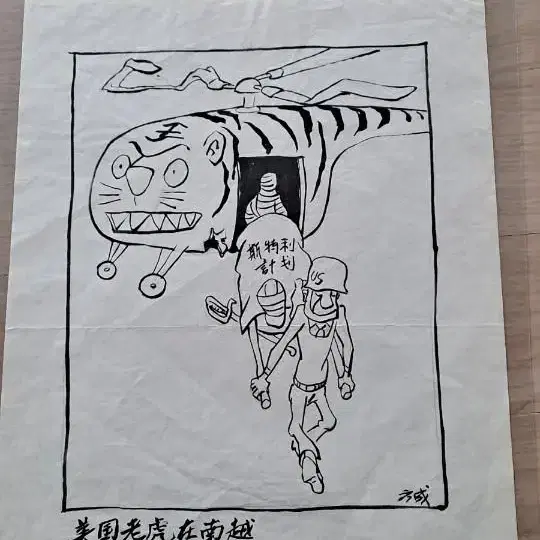 斯特利
計划
US
方成
美国老虎在南越